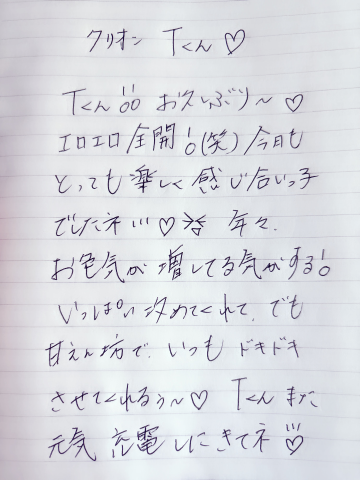 クリオン Tくん♡
Tくん!! お久しぶり〜♡
エロエロ全開!(笑)今日も
とっても楽しく感じ合いっ子
でしたネ!!!♡ 年々、
お色気が増してる気がする!
いっぱい攻めてくれて、でも
甘えん坊で、いつもドキドキ
させてくれるぅ〜♡ Tくんまた
元気充電しにきてネ!!!♡